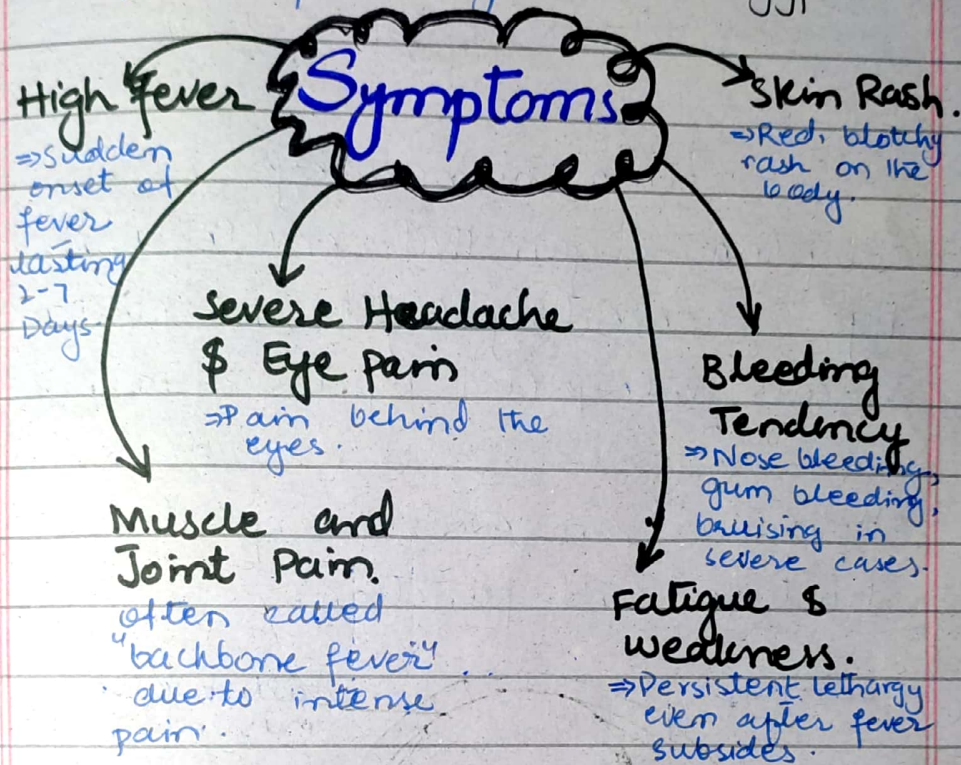 Symptoms
High fever
⇒Sudden
onset of
fever
lasting
2-7
Days
Severe Headache
$ Eye Pain
⇒Pain behind the
eyes.
Muscle and
Joint Pain.
often called
"backbone fever"
due to intense
pain.
Skin Rash.
⇒Red, blotchy
rash on the
body.
Bleeding
Tendency
⇒Nose bleeding,
gum bleeding,
bruising in
severe cases.
Fatigue $
weakness.
⇒Persistent lethargy
even after fever
subsides.